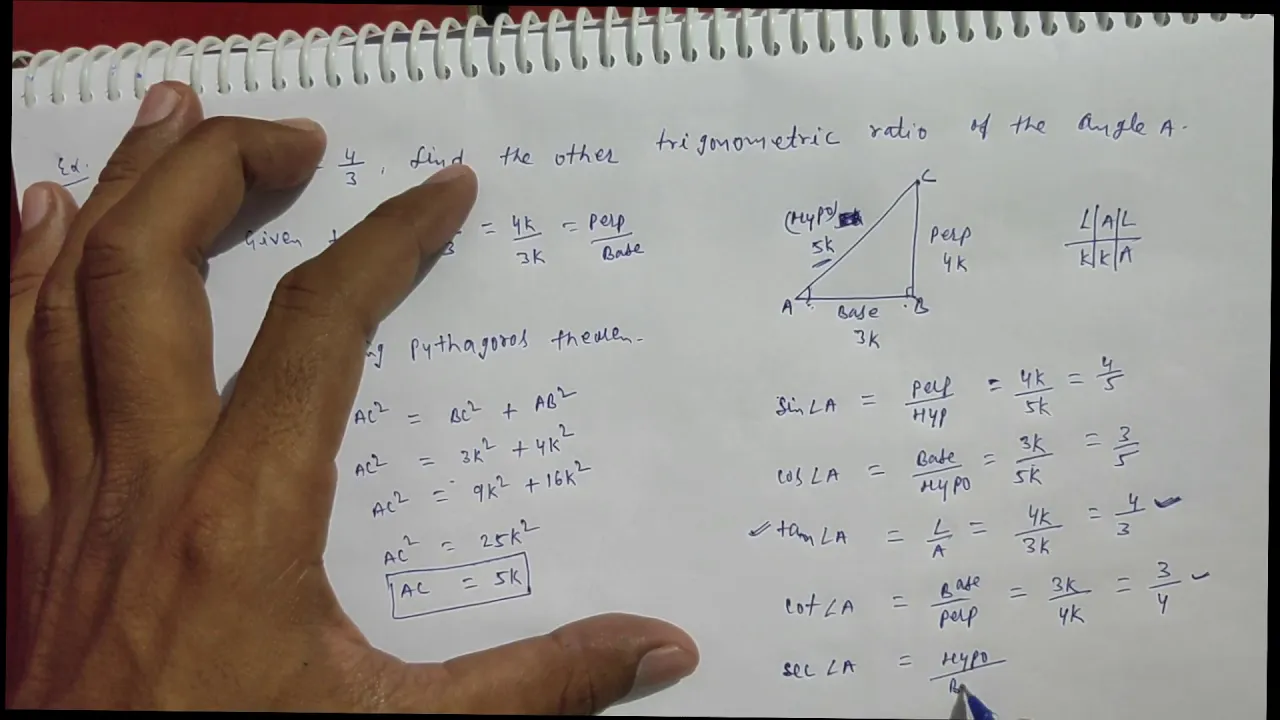 Ex. = 4/3, find the other trigonometric ratio of the angle A.
Given = 4K/3K = Perp/Base
Pythagoros theoren.
AC² = BC² + AB²
AC² = 3K² + 4K²
AC² = 9K² + 16K²
AC² = 25K²
AC = 5K
C
(Hypo)
5K
Perp
4K
A
Base
B
3K
L|A|L
K|K|A
Sin∠A = Perp/Hyp = 4K/5K = 4/5
cos∠A = Base/Hypo = 3K/5K = 3/5
✓ tan∠A = L/A = 4K/3K = 4/3 ✓
cot∠A = Base/Perp = 3K/4K = 3/4 ✓
sec∠A = Hypo/B